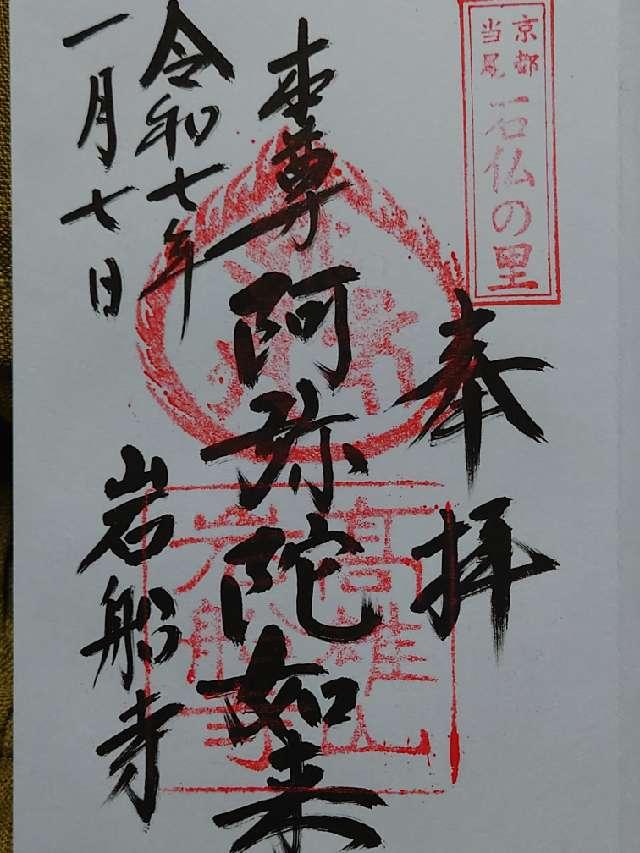 京都
当尾
石仏の里
奉拝
本尊
阿弥陀如来
令和七年
一月七日
岩船寺
高雄山
岩船寺